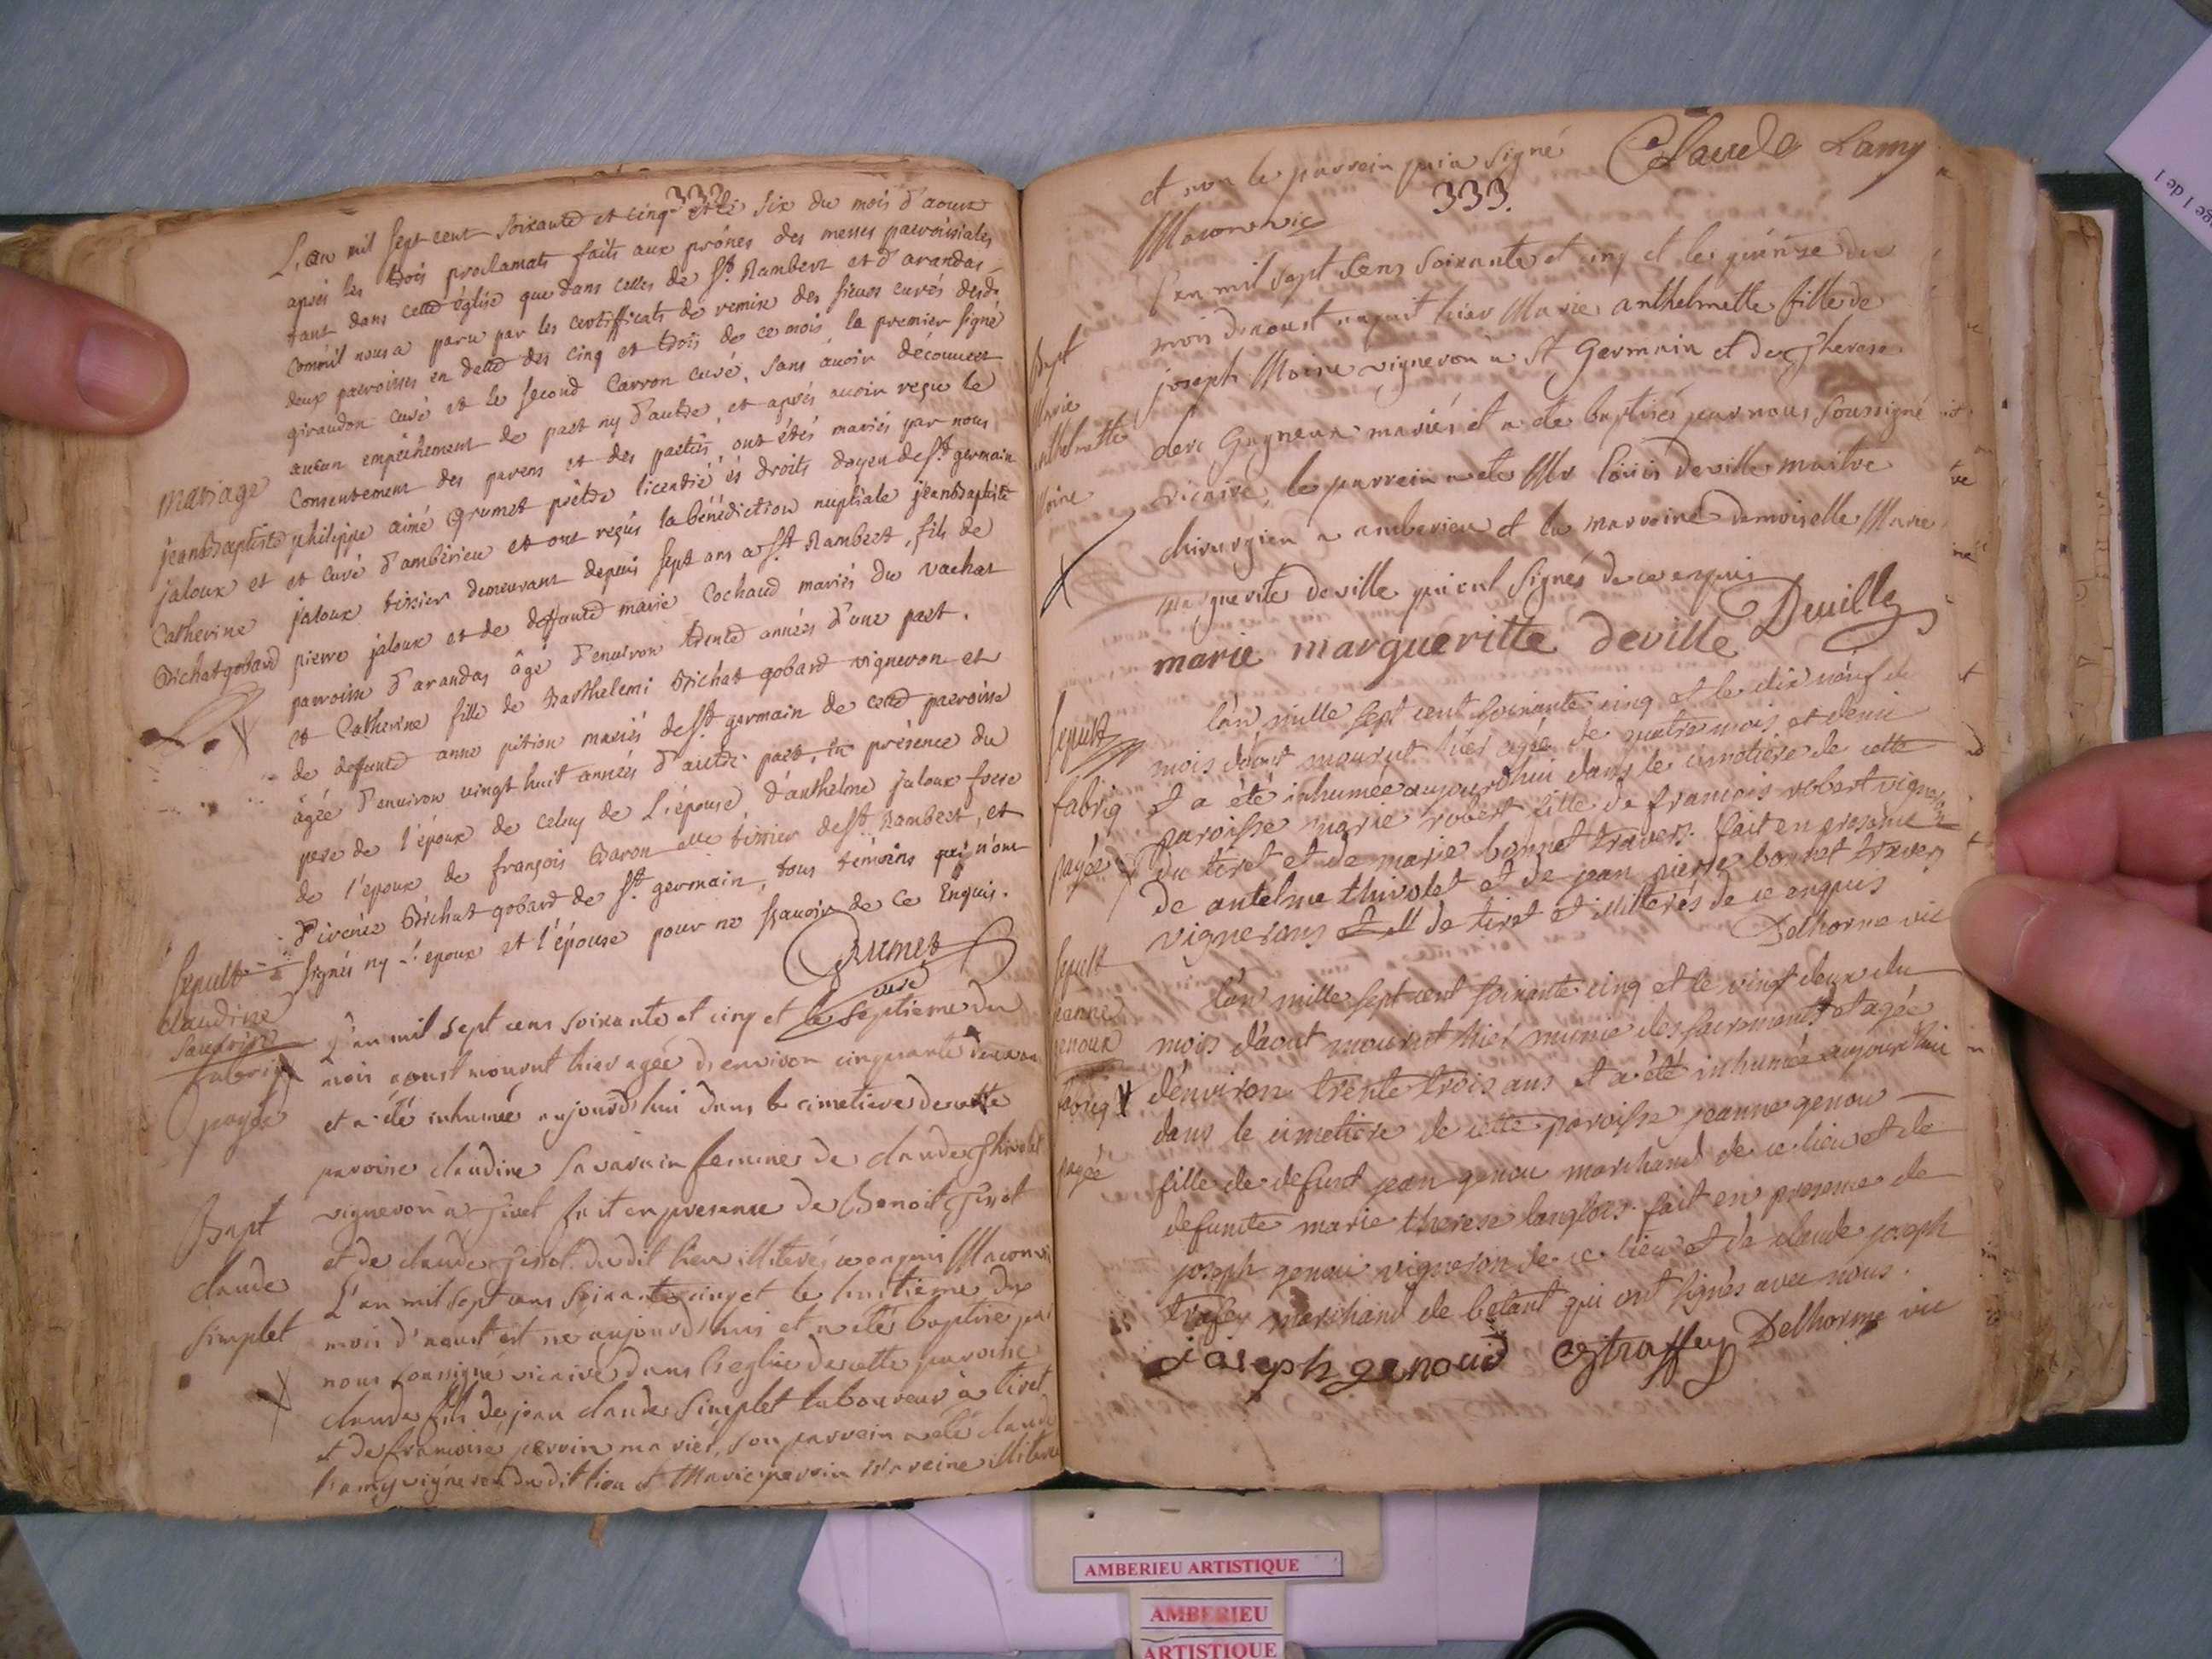 332
L'an mil sept cent soixante et cinq et le six du mois d'aoust
après les trois proclamats faits aux prônes des messes parroissiales
tant dans cette église que dans celles de St. Rambert et d'arandas
comm'il nous a paru par les certifficats de remise des sieurs curés desd.
deux parroisses en datte des cinq et trois de ce mois le premier signé
giraudon curé et le second Carron curé, sans avoir découvert
aucun empêchement de part ny d'autre, et après avoir reçu le
mariage
Consentement des parens et des parties, ont étés mariés par nous
jeanbaptiste
philippe aimé Grumet prêtre licentié ès droits doyen de St. germain
jaloux et
et curé d'ambérieu et ont reçus la bénédiction nuptiale jeanbaptiste
Catherine
jaloux tissier demeurant depuis sept ans a St. Rambert, fils de
Brichatgobard
pierre jaloux et de deffunte marie Cochaud mariés du vachat
parroisse d'arandas âgé d'environ trente années d'une part.
et Catherine fille de Barthelemi Brichat gobard vigneron et
de defunte anne pition mariés de St. germain de cette parroisse
âgée d'environ vingt huit années d'autre part, en présence du
pere de l'époux de celuy de l'épouse d'anthelme jaloux frere
de l'epoux, de françois Baron tissier de St. Rambert, et
d'irénée Brichat gobard de St. germain, tous témoins qui n'ont
signés ny l'époux et l'épouse pour ne sçavoir de ce Enquis.
Grumet
curé
Sepult
claudine
Savarin
fabriq
payée
L'an mil sept cens soixante et cinq et le septieme du
mois aoust mourut hier agée d'environ cinquante deux ans
et a été inhumée aujourd'hui dans le cimetiere de cette
paroisse claudine Savarin femme de claude Thivolet
vigneron à Tiret fait en presence de Benoit Tissot
et de claude Tissot dudit lieu illiterés ce enquis Maconvic
Bapt
claude
Simplet
L'an mil sept cens soixante cinq et le huitieme du
mois d'aoust est né aujourd'hui et a eté baptisé par
nous soussigné vicaire dans l'eglise de cette paroisse
claude fils de jean claude Simplet laboureur à tiret
et de francoise perrin mariés, son parrein a eté claude
Lamy vigneron dudit lieu et Marie perrin mareine illiteré
et non le parrein qui a signé Claude Lamy
333.
Maconvic
Bapt
Marie
anthelmette
Moine
l'an mil sept cens soixante et cinq et le quinze du
mois d'aoust naquit hier Marie anthelmette fille de
joseph Moine vigneron a St Germain et de Therese
claire Gagneux mariés et a eté baptisé par nous soussigné
vicaire, le parrein a eté Mr louis deville maitre
chirurgien a amberieu et la marraine demoiselle Marie
Marguerite deville qui ont signés de ce enquis
marie margueritte deville Deville
Sepult
fabriq
payée
l'an mille sept cent soixante cinq et le dix neuf du
mois d'aout mourut hier agée de quatre mois et demi
et a été inhumée aujourdhui dans le cimetiere de cette
paroisse marie robert fille de francois robert vigneron
du tiret et de marie bonnet travers. fait en presence
de antelme thivolet et de jean pierre bonnet travers
vignerons de tiret et illiterés de ce enquis
Delhorme vic
Sepult
jeanne
genoux
fabriq
payée
l'an mille sept cent soixante cinq et le vingt deux du
mois d'aout mourut hier munie des sacrements et agée
d'environ trente trois ans et a été inhumée aujourd'hui
dans le cimetiere de cette paroisse jeanne genou
fille de defunt jean genou marchand de ce lieu et de
defunte marie therese langlois. fait en presence de
joseph genou vigneron de ce lieu et de claude joseph
trafey marchand de belant qui ont signés avec nous.
joseph genoud Cg traffey Delhorme vic
AMBERIEU ARTISTIQUE
AMBERIEU
ARTISTIQUE